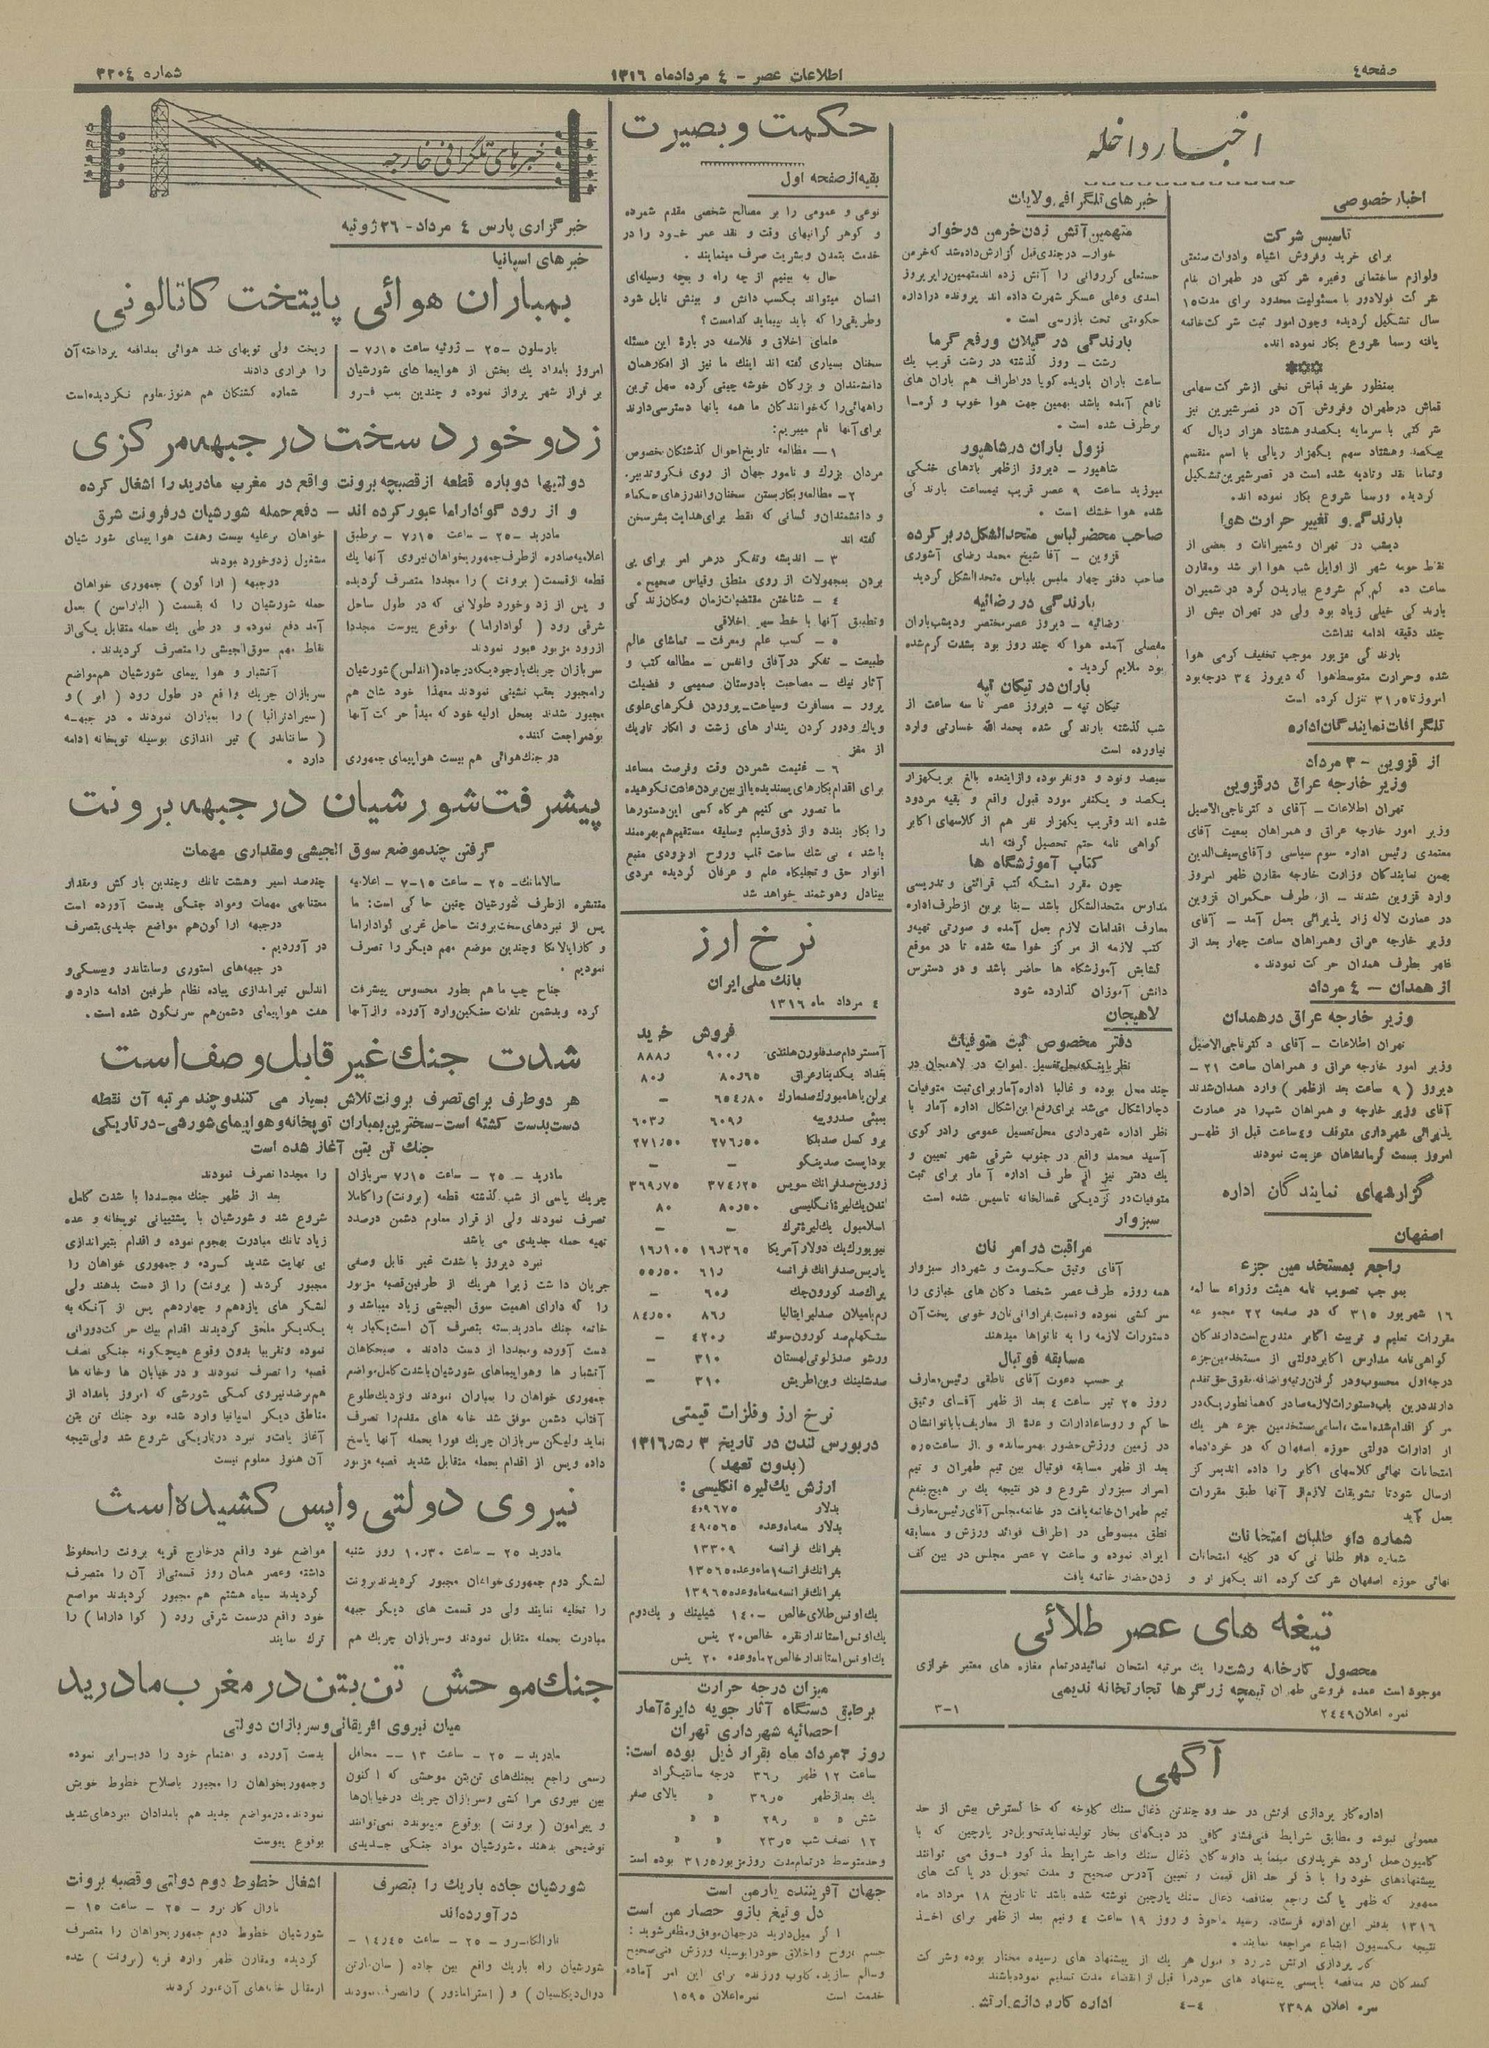 صفحه ٤
اطلاعات عصر - ٤ مردادماه ١٣١٦
شماره ٣٢٠٤
اخبار داخله
اخبار خصوصی
تاسیس شرکت
برای خرید وفروش اشیاء وادوات صنعتی
ولوازم ساختمانی وغیره شرکتی در طهران بنام
شرکت فولادور با مسئولیت محدود برای مدت ١٥
سال تشکیل گردیده وچون امور ثبت شرکت خاتمه
یافته رسما شروع بکار نموده اند.
بمنظور خرید قماش نخی از شرکت سهامی
قماش درطهران وفروش آن در قصرشیرین نیز
شرکتی با سرمایه یکصدو هشتاد هزار ریال که
بیکصد وهشتاد سهم یکهزار ریالی با اسم منقسم
وتماما نقد وتادیه شده است در قصرشیرین تشکیل
گردیده ورسما شروع بکار نموده اند.
بارندگی و تغییر حرارت هوا
دیشب در تهران وشمیرانات و بعضی از
نقاط حومه شهر از اوایل شب هوا ابر شد ومقارن
ساعت ده کم کم شروع بباریدن کرد در شمیران
بارندگی خیلی زیاد بود ولی در تهران بیش از
چند دقیقه ادامه نداشت
بارندگی مزبور موجب تخفیف گرمی هوا
شده وحرارت متوسط هوا که دیروز ٣٤ درجه بود
امروز تا ٣١٫٥ تنزل کرده است
تلگرافات نمایندگان اداره
از قزوین - ٣ مرداد
وزیر خارجه عراق درقزوین
تهران اطلاعات - آقای دکتر ناجی الاصیل
وزیر امور خارجه عراق و همراهان بمعیت آقای
معتمدی رئیس اداره سوم سیاسی و آقای سیف الدین
بهمن نمایندگان وزارت خارجه مقارن ظهر امروز
وارد قزوین شدند - از طرف حکمران قزوین
در عمارت لاله زار پذیرائی بعمل آمد - آقای
وزیر خارجه عراق وهمراهان ساعت چهار بعد از
ظهر بطرف همدان حرکت نمودند.
از همدان - ٤ مرداد
وزیر خارجه عراق در همدان
تهران اطلاعات - آقای دکتر ناجی الاصیل
وزیر امور خارجه عراق و همراهان ساعت ٢١ -
دیروز ( ٩ ساعت بعد ازظهر ) وارد همدان شدند
آقای وزیر خارجه و همراهان شب را در عمارت
پذیرائی شهرداری متوقف و ٤ ساعت قبل از ظهر
امروز بسمت کرمانشاهان عزیمت نمودند
گزارشهای نمایندگان اداره
اصفهان
راجع بمستخدمین جزء
بموجب تصویب نامه هیئت وزراء سالمه
١٦ شهریور ٣١٥ که در صفحه ٢٢ مجموعه
مقررات تعلیم و تربیت اکابر مندرج است دارندگان
گواهی نامه مدارس اکابر دولتی از مستخدمین جزء
درجه اول محسوب ودر گرفتن رتبه واضافه حقوق حق تقدم
دارند
از ادارات دولتی حوزه اصفهان که در خرداد ماه
امتحانات نهائی کلاسهای اکابر را داده اند بمرکز
ارسال شود تا تشویقات لازم از آنها طبق مقررات
بعمل آید
شماره داو طلبان امتحانات
شماره داو طلبانی که در کلیه امتحانات
نهائی حوزه اصفهان شرکت کرده اند یکهزار و
خبرهای تلگرافی ولایات
متهمین آتش زدن خرمن درخوار
خوار - در چندی قبل گزارش داده شد که خرمن
اسدی وعلی عسکر شهرت داده اند پرونده دراداره
حکومتی تحت بازرسی است.
بارندگی در گیلان ورفع گرما
رشت - روز گذشته در رشت قریب یک
ساعت باران باریده گویا در اطراف هم باران های
نافع آمده باشد بهمین جهت هوا خوب و گرما
برطرف شده است.
نزول باران درشاهپور
شاهپور - دیروز ازظهر بادهای خنکی
میوزید ساعت ٩ عصر قریب نیمساعت بارندگی
شده هوا خنک است.
صاحب محضر لباس متحدالشکل در بر کرده
قزوین - آقا شیخ محمد رضای آشوری
صاحب دفتر چهار ملبس بلباس متحدالشکل گردید
بارندگی در رضائیه
رضائیه - دیروز عصر مختصر ودیشب باران
مفصلی آمده هوا که چند روز بود بشدت گرم شده
بود ملایم گردید.
باران در تیکان تپه
تیکان تپه - دیروز عصر تا سه ساعت از
شب گذشته بارندگی شده بحمد الله خسارتی وارد
نیاورده است
سیصد ونود و دونفر بوده و از اینعده بالغ بر یکهزار
یکصد و یکنفر مورد قبول واقع و بقیه مردود
شده اند وقریب یکهزار نفر هم از کلاسهای اکابر
گواهی نامه ختم تحصیل گرفته اند
کتاب آموزشگاه ها
چون مقرر است که کتب قرائتی و تدریسی
مدارس متحدالشکل باشد - بنا براین از طرف اداره
معارف اقدامات لازم بعمل آمده و صورتی تهیه و
کتب لازمه از مرکز خواسته شده تا در موقع
گشایش آموزشگاه ها حاضر باشد و در دسترس
دانش آموزان گذارده شود
لاهیجان
دفتر مخصوص ثبت متوفیات
چند محل بوده و غالبا اداره آمار برای ثبت متوفیات
دچار اشکال می شد برای رفع این اشکال اداره آمار با
نظر اداره شهرداری محل تغسیل عمومی را در کوی
آسید محمد واقع در جنوب شرقی شهر تعیین و
یک دفتر نیز از طرف اداره آمار برای ثبت
متوفیات در نزدیکی غسالخانه تاسیس شده است
سبزوار
مراقبت درامر نان
آقای وثیق حکومت و شهردار سبزوار
همه روزه طرف عصر شخصا دکان های خبازی را
سرکشی نموده و نسبت بفراوانی نان و خوبی پخت آن
دستورات لازمه را به نانواها میدهند
مسابقه فوتبال
بر حسب دعوت آقای ناطقی رئیس معارف
روز ٢٥ تیر ساعت ٤ بعد از ظهر آقای وثیق
حاکم و روساء ادارات و عدۀ از معاریف بابانوانشان
در زمین ورزش حضور بهمرسانده و از ساعت ٥
بعد از ظهر مسابقه فوتبال بین تیم طهران و تیم
احرار سبزوار شروع و در نتیجه یک بر هیچ بنفع
تیم طهران خاتمه یافت در خاتمه مجلس آقای رئیس معارف
نطق مبسوطی در اطراف فوائد ورزش و مسابقه
ایراد نموده و ساعت ٧ عصر مجلس در بین کف
زدن حضار خاتمه یافت
تیغه های عصر طلائی
محصول کارخانه رشت را یک مرتبه امتحان نمائید در تمام مغازه های معتبر خرازی
موجود است عمده فروشی طهران تیمچه زرگرها تجارتخانه ندیمی
نمره اعلان ٢٤٤٩
٣-١
آگهی
اداره کار پردازی ارتش در حدود چندتن ذغال سنگ کلوخه که خاکسترش بیش از حد
معمولی نبوده و مطابق شرایط فنی فشار کافی در دیگهای بخار تولید نماید تحویل در پارچین که با
کامیون حمل گردد خریداری مینماید دارندگان ذغال سنگ واجد شرایط مذکور فوق می توانند
پیشنهادهای خود را با ذکر حد اقل قیمت و تعیین آدرس صحیح و مدت تحویل در پاکت های
ممهور که ظهر پاکت راجع بمناقصه ذغال سنگ پارچین نوشته شده باشد تا تاریخ ١٨ مرداد ماه
١٣١٦ بدفتر این اداره فرستاده رسید ماخوذ و روز ١٩ ساعت ٤ و نیم بعد از ظهر برای اخذ
نتیجه بکمسیون ابتیاع مراجعه نمایند.
کار پردازی ارتش در رد و قبول هر یک از پیشنهاد های رسیده مختار بوده وشرکت
کنندگان در مناقصه بایستی پیشنهاد های خود را قبل از انقضاء مدت تسلیم نموده باشند
نمره اعلان ٢٣٩٨
٤-٤
اداره کار پردازی ارتش
حکمت و بصیرت
بقیه از صفحه اول
نوعی و عمومی را بر مصالح شخصی مقدم شمرده
و گوهر گرانبهای وقت و نقد عمر خود را در
خدمت بتمدن وبشریت صرف مینمایند.
حال به بینیم از چه راه و بچه وسیله ای
انسان میتواند بکسب دانش و بینش نایل شود
وطریقی را که باید بپیماید کدامست؟
علمای اخلاق و فلاسفه در بارۀ این مسئله
سخنان بسیاری گفته اند اینک ما نیز از افکار همان
دانشمندان و بزرگان خوشه چینی کرده سهل ترین
راههائی را که خوانندگان ما همه بآنها دسترسی دارند
برای آنها نام میبریم:
١- مطالعه تاریخ احوال گذشتگان خصوص
مردان بزرگ و نامور جهان از روی فکر و تدبیر.
٢- مطالعه و بکار بستن سخنان واندرزهای حکماء
و دانشمندان و کسانی که فقط برای هدایت بشر سخن
گفته اند
٣- اندیشه وتفکر درهر امر برای پی
بردن بمجهولات از روی منطق وقیاس صحیح.
٤- شناختن مقتضیات زمان ومکان زندگی
وتطبیق آنها با خط سیر اخلاقی
٥- کسب علم ومعرفت - تماشای عالم
طبیعت - تفکر درآفاق وانفس - مطالعه کتب و
آثار نیک - مصاحبت بادوستان صمیمی و فضیلت
پرور - مسافرت وسیاحت - پروردن فکرهای علوی
وپاک ودور کردن پندار های زشت و افکار تاریک
از مغز
٦- غنیمت شمردن وقت وفرصت مساعد
برای اقدام بکارهای پسندیده یا از بین بردن عادت نکوهیده
ما تصور می کنیم هر گاه کسی این دستورها
را بکار بندد و از ذوق سلیم وسلیقه مستقیم هم بهره مند
باشد، بی شک ساحت قلب وروح اوبزودی منبع
انوار حق و تجلیگاه علم و عرفان گردیده مردی
بینادل وهوشمند خواهد شد
نرخ ارز
بانک ملی ایران
٤ مرداد ماه ١٣١٦
فروش خرید
آمستردام صد فلورن هلندی ٩٠٠ر ٨٨٨ر
بغداد یکدینار عراق ٨٠٫٦٥ ٨٠ر
برلن یا هامبورک صد مارک ٦٥٤٫٨٠ -
بمبئی صد روپیه ٦٠٩ر ٦٠٣ر
بروکسل صد بلکا ٢٧٦٫٥٠ ٢٧١٫٥٠
بوداپست صد پنگو - -
زوریخ صد فرانک سویس ٣٧٤٫٢٥ ٣٦٩٫٧٥
لندن یک لیرۀ انگلیسی ٨٠٫٥٠ ٨٠
اسلامبول یک لیرۀ ترک - -
نیویورک یک دولار آمریکا ١٦٫٣٦٥ ١٦٫١٠٥
پاریس صد فرانک فرانسه ٦١ر ٥٥٫٥٠
پراک صد کورون چک ٦٠ر -
رم یا میلان صد لیر ایتالیا ٨٦ر ٨٤٫٥٠
ستکهلم صد کورون سوئد ٤٢٠ر -
ورشو صد زلوتی لهستان ٣١٠ -
صد شلینک وین اطریش ٣١٠ -
نرخ ارز وفلزات قیمتی
دربورس لندن در تاریخ ٣ر٥ر١٣١٦
(بدون تعهد)
ارزش یک لیره انگلیسی:
بدلار ٤٫٩٦٧٥
بدلار سه ماه وعده ٤٩٫٥٦٥
بفرانک فرانسه ١٣٣٠٩
بفرانک فرانسه ١ ماه وعده ١٣٥٦٥
بفرانک فرانسه سه ماه وعده ١٣٩٦٥
یک اونس طلای خالص - ١٤٠ شیلینک و یک دوم
یک اونس استاندارد نقره خالص ٢٠ پنس
یک اونس استاندارد خالص ٢ ماه وعده ٢٠ پنس
میزان درجه حرارت
برطبق دستگاه آثار جویه دایرۀ آمار
احصائیه شهرداری تهران
روز ٣ مرداد ماه بقرار ذیل بوده است:
ساعت ١٢ ظهر ٣٦ر درجه سانتیگراد
یک بعد از ظهر ٣٦٫٥ » بالای صفر
شش » » ٢٩ر » »
١٢ نصف شب ٢٣٫٥ » »
وحد متوسط در تمام مدت روز مزبور ٣١٫٥ بوده است
جهان آفریننده یار من است
دل و تیغ بازو حصار من است
اگر میل دارید در جهان موفق و مظفر شوید:
جسم و روح و اخلاق خود را بوسیله ورزش فنی صحیح
وسالم سازید. کلوب ورزنده برای این امر آماده
خدمت است نمره اعلان ١٥٩٥
خبرهای تلگرافی خارجه
خبرگزاری پارس ٤ مرداد - ٢٦ ژوئیه
خبرهای اسپانیا
بمباران هوائی پایتخت کاتالونی
بارسلون - ٢٥ - ژوئیه ساعت ٧٫١٥ -
امروز بامداد یک بخش از هواپیماهای شورشیان
بر فراز شهر پرواز نموده و چندین بمب فرو
ریخت ولی توپهای ضد هوائی بمدافعه پرداخته آن
را فراری دادند
شماره کشتگان هم هنوز معلوم نگردیده است
زدو خورد سخت در جبهه مرکزی
دولتیها دوباره قطعه از قصبچه برونت واقع در مغرب مادرید را اشغال کرده
و از رود گواداراما عبور کرده اند - دفع حمله شورشیان در فرونت شرق
مادرید - ٢٥ - ساعت ٧٫١٥ - برطبق
اعلامیه صادره ازطرف جمهوریخواهان نیروی آنها یک
قطعه ازقسمت (برونت) را مجددا متصرف گردیده
و پس از زد وخورد طولانی که در طول ساحل
شرقی رود (گواداراما) بوقوع پیوست مجددا
ازرود مزبور عبور نمودند
سربازان چریک باوجودیکه درجاده (اندلس) شورشیان
رامجبور بعقب نشینی نمودند معهذا خود شان هم
مجبور شدند بمحل اولیه خود که مبدأ حرکت آنها
بود مراجعت کنند.
در جنک هوائی هم بیست هواپیمای جمهوری
خواهان برعلیه بیست وهفت هوا پیمای شورشیان
مشغول زدوخورد بودند
درجبهه (اراگون) جمهوری خواهان
حمله شورشیان را که بقسمت (الباراسن) بعمل
آمد دفع نموده و در طی یک حمله متقابل یکی از
نقاط مهم سوق الجیشی را متصرف گردیدند.
آتشبار و هوا پیمای شورشیان هم مواضع
سربازان چریک واقع در طول رود (ابر) و
(سیرادنرانیا) را بمباران نمودند. در جبهه
(سانتاندر) تیر اندازی بوسیله توپخانه ادامه
دارد.
پیشرفت شورشیان در جبهه برونت
گرفتن چندموضع سوق الجیشی ومقداری مهمات
سالامانک - ٢٥ - ساعت ١٥-٧ - اعلامیه
منتشره ازطرف شورشیان چنین حاکی است: ما
پس از نبردهای سخت برونت ساحل غربی گواداراما
و کازابالامکا وچندین موضع مهم دیگر را تصرف
نمودیم.
جناح چپ ما هم بطور محسوس پیشرفت
کرده وبدشمن تلفات سنگین وارد آورده واز آنها
چندصد اسیر وهشت تانک وچندین بارکش ومقدار
معتنابهی مهمات ومواد جنگی بدست آورده است
درجبهه اراگون هم مواضع جدیدی بتصرف
در آوردیم.
در جبهه های استوری وسانتاندر وبیسکی و
اندلس تیراندازی پیاده نظام طرفین ادامه دارد و
هفت هواپیمای دشمن هم سرنگون شده است.
شدت جنک غیر قابل وصف است
هر دوطرف برای تصرف برونت تلاش بسیار می کنند و چند مرتبه آن نقطه
دست بدست گشته است - سختترین بمباران توپخانه وهواپیمای شورشی - در تاریکی
جنک تن بتن آغاز شده است
مادرید - ٢٥ - ساعت ٧٫١٥ سربازان
چریک پاسی از شب گذشته قطعه (برونت) را کاملا
تصرف نمودند ولی از قرار معلوم دشمن درصدد
تهیه حمله جدیدی می باشد
نبرد دیروز با شدت غیر قابل وصفی
جریان داشت زیرا هریک از طرفین قصبه مزبور
را که دارای اهمیت سوق الجیشی زیاد میباشد و
خاتمه جنک مادرید بسته بتصرف آن است یکبار به
دست آورده ومجددا از دست دادند. صبحگاهان
آتشبار ها وهواپیماهای شورشیان باشدت کامل مواضع
جمهوری خواهان را بمباران نمودند ونزدیک طلوع
آفتاب دشمن موفق شد خانه های مقدم را تصرف
نماید ولیکن سربازان چریک فورا بحمله آنها پاسخ
داده وپس از اقدام بحمله متقابل شدید قصبه مزبور
را مجددا تصرف نمودند
بعد از ظهر جنک مجددا با شدت کامل
شروع شد و شورشیان با پشتیبانی توپخانه و عده
زیاد تانک مبادرت بهجوم نموده و اقدام بتیراندازی
بی نهایت شدید کرده و جمهوری خواهان را
مجبور کردند (برونت) را از دست بدهند ولی
لشکر های یازدهم و چهاردهم پس از آنکه به
یکدیگر ملحق گردیدند اقدام بیک حرکت دورانی
نموده وتقریبا بدون وقوع هیچگونه جنگی نصف
قصبه را تصرف نمودند و در خیابان ها وخانه ها
هم برضد نیروی کمکی شورشی که امروز بامداد از
مناطق دیگر اسپانیا وارد شده بود جنک تن بتن
آغاز یافت و نبرد درتاریکی شروع شد ولی نتیجه
آن هنوز معلوم نیست
نیروی دولتی واپس کشیده است
مادرید ٢٥ - ساعت ١٠٫٣٠ روز شنبه
لشگر دوم جمهوری خواهان مجبور گردیدند برونت
را تخلیه نمایند ولی در قسمت های دیگر جبهه
مبادرت بحمله متقابل نمودند وسربازان چریک هم
مواضع خود واقع درخارج قریه برونت را محفوظ
داشته وعصر همان روز قسمتی از آن را متصرف
گردیدند سپاه هشتم هم مجبور گردیدند مواضع
خود واقع درسمت شرقی رود (گواداراما) را
ترک نمایند
جنک موحش تن بتن در مغرب مادرید
میان نیروی افریقائی و سربازان دولتی
مادرید - ٢٥ - ساعت ١٣ - محافل
رسمی راجع بجنک های تن بتن موحشی که اکنون
بین نیروی مراکشی وسربازان چریک درخیابان ها
و پیرامون (برونت) بوقوع میپیوندد نمی توانند
توضیحی بدهند. شورشیان مواد جنگی جدیدی
بدست آورده و اهتمام خود را دوبرابر نموده
وجمهوریخواهان را مجبور باصلاح خطوط خویش
نمودند. درمواضع جدید هم بامدادان نبردهای شدید
بوقوع پیوست
شورشیان جاده باریک را بتصرف
در آورده اند
ناوالکارنرو - ٢٥ - ساعت ١٤٫٤٥ -
شورشیان راه باریک واقع بین جاده (سان مارتن
دوال دیکلسیاس) و (استرامادور) را تصرف نمودند
اشغال خطوط دوم دولتی وقصبه برونت
ناوال کارنرو - ٢٥ - ساعت ١٥ -
شورشیان خطوط دوم جمهوریخواهان را متصرف
گردیده ومقارن ظهر وارد قریه (برونت) شده
از مقابل خانه های آن عبور کردند